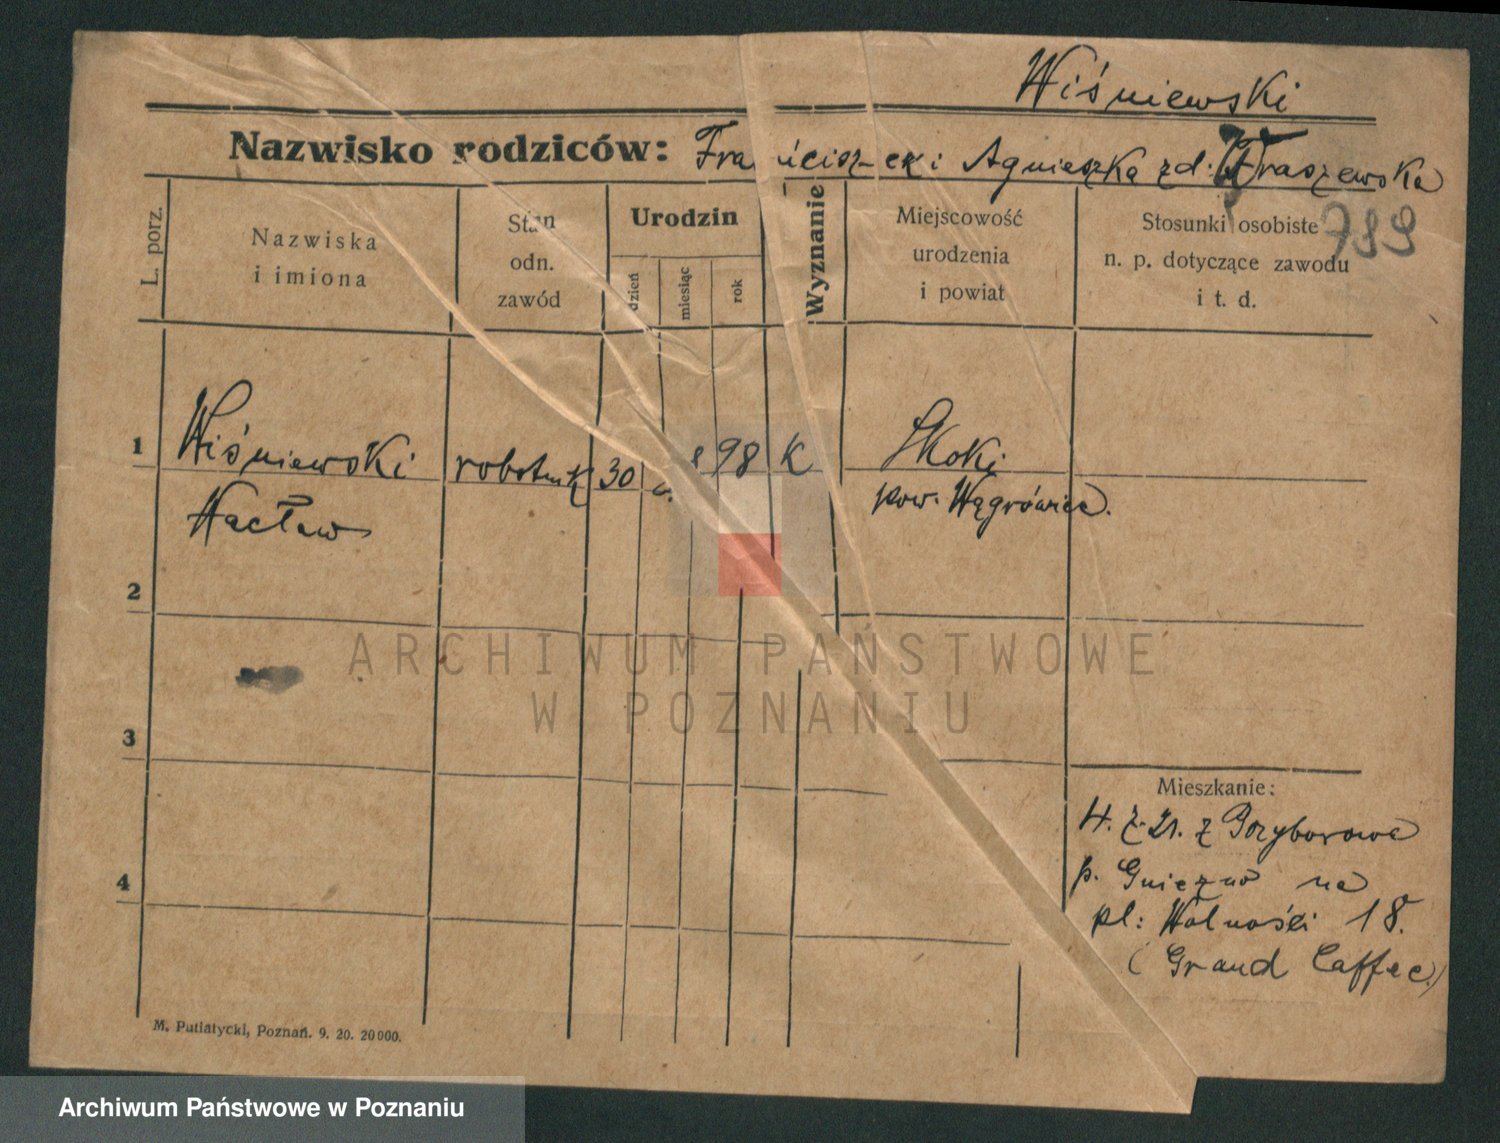 Wiśniewski
Nazwisko rodziców: Franciszek i Agnieszka zd.
799
L. porz.
Nazwiska
i imiona
Stan
odn.
zawód
Urodzin
dzień
miesiąc
rok
Wyznanie
Miejscowość
urodzenia
i powiat
Stosunki osobiste
n. p. dotyczące zawodu
i t. d.
1
Wiśniewski robotnik 30 98 K Skoki
Wacław pow. Wągrówiec.
2
3
4
Mieszkanie:
z
p. Gniezno na
pl: Wolności 18.
(Grand Caffee)
M. Putiatycki, Poznań. 9. 20. 20000.
ARCHIWUM PAŃSTWOWE
W POZNANIU
Archiwum Państwowe w Poznaniu